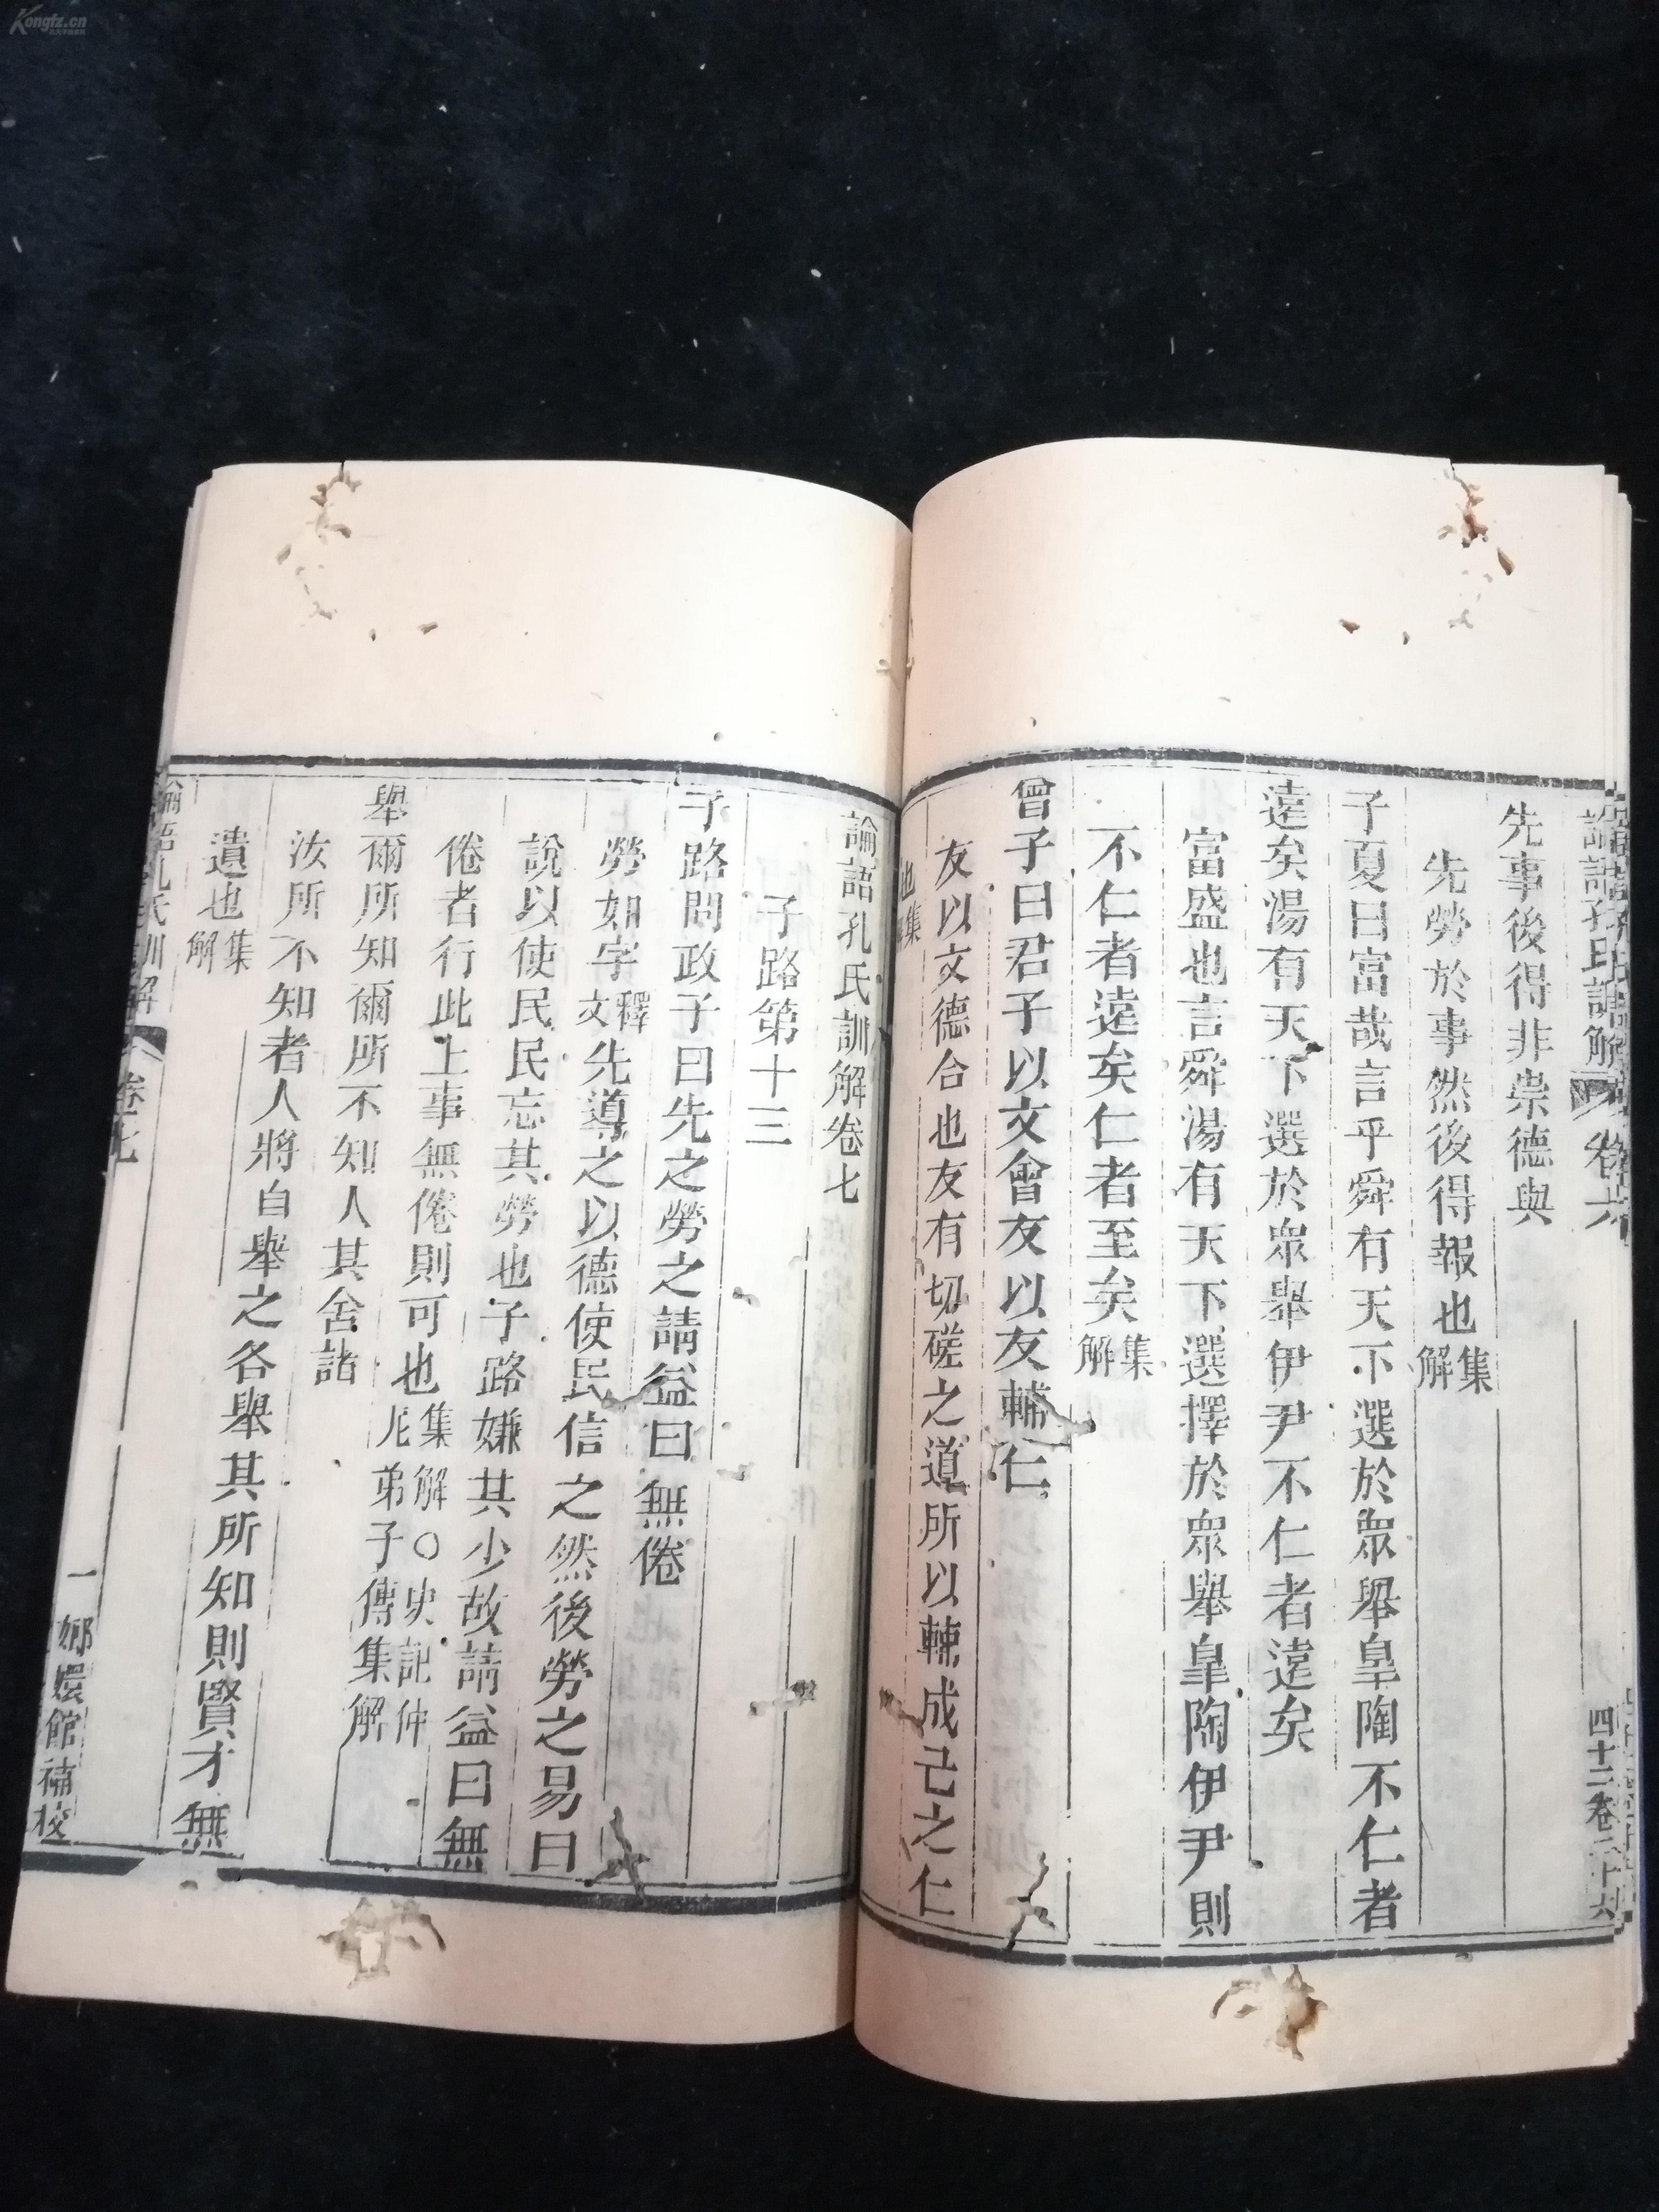 Kongfz.cn
論語孔氏訓解 卷六
四十二 卷二十六
先事後得非崇德與
先勞於事然後得報也集解
子夏曰富哉言乎舜有天下選於眾舉皐陶不仁者
遠矣湯有天下選於眾舉伊尹不仁者遠矣
富盛也言舜湯有天下選擇於眾舉皐陶伊尹則
不仁者遠矣仁者至矣集解
曾子曰君子以文會友以友輔仁
友以文德合也友有切磋之道所以輔成己之仁
也集
論語孔氏訓解卷七
子路第十三
子路問政子曰先之勞之請益曰無倦
勞如字釋文先導之以德使民信之然後勞之易曰
說以使民民忘其勞也子路嫌其少故請益曰無
倦者行此上事無倦則可也集解○史記仲尼弟子傳集解
舉爾所知爾所不知人其舍諸
汝所不知者人將自舉之各舉其所知則賢才無
遺也集解
論語孔氏訓解 卷七
一 嫏嬛館補校